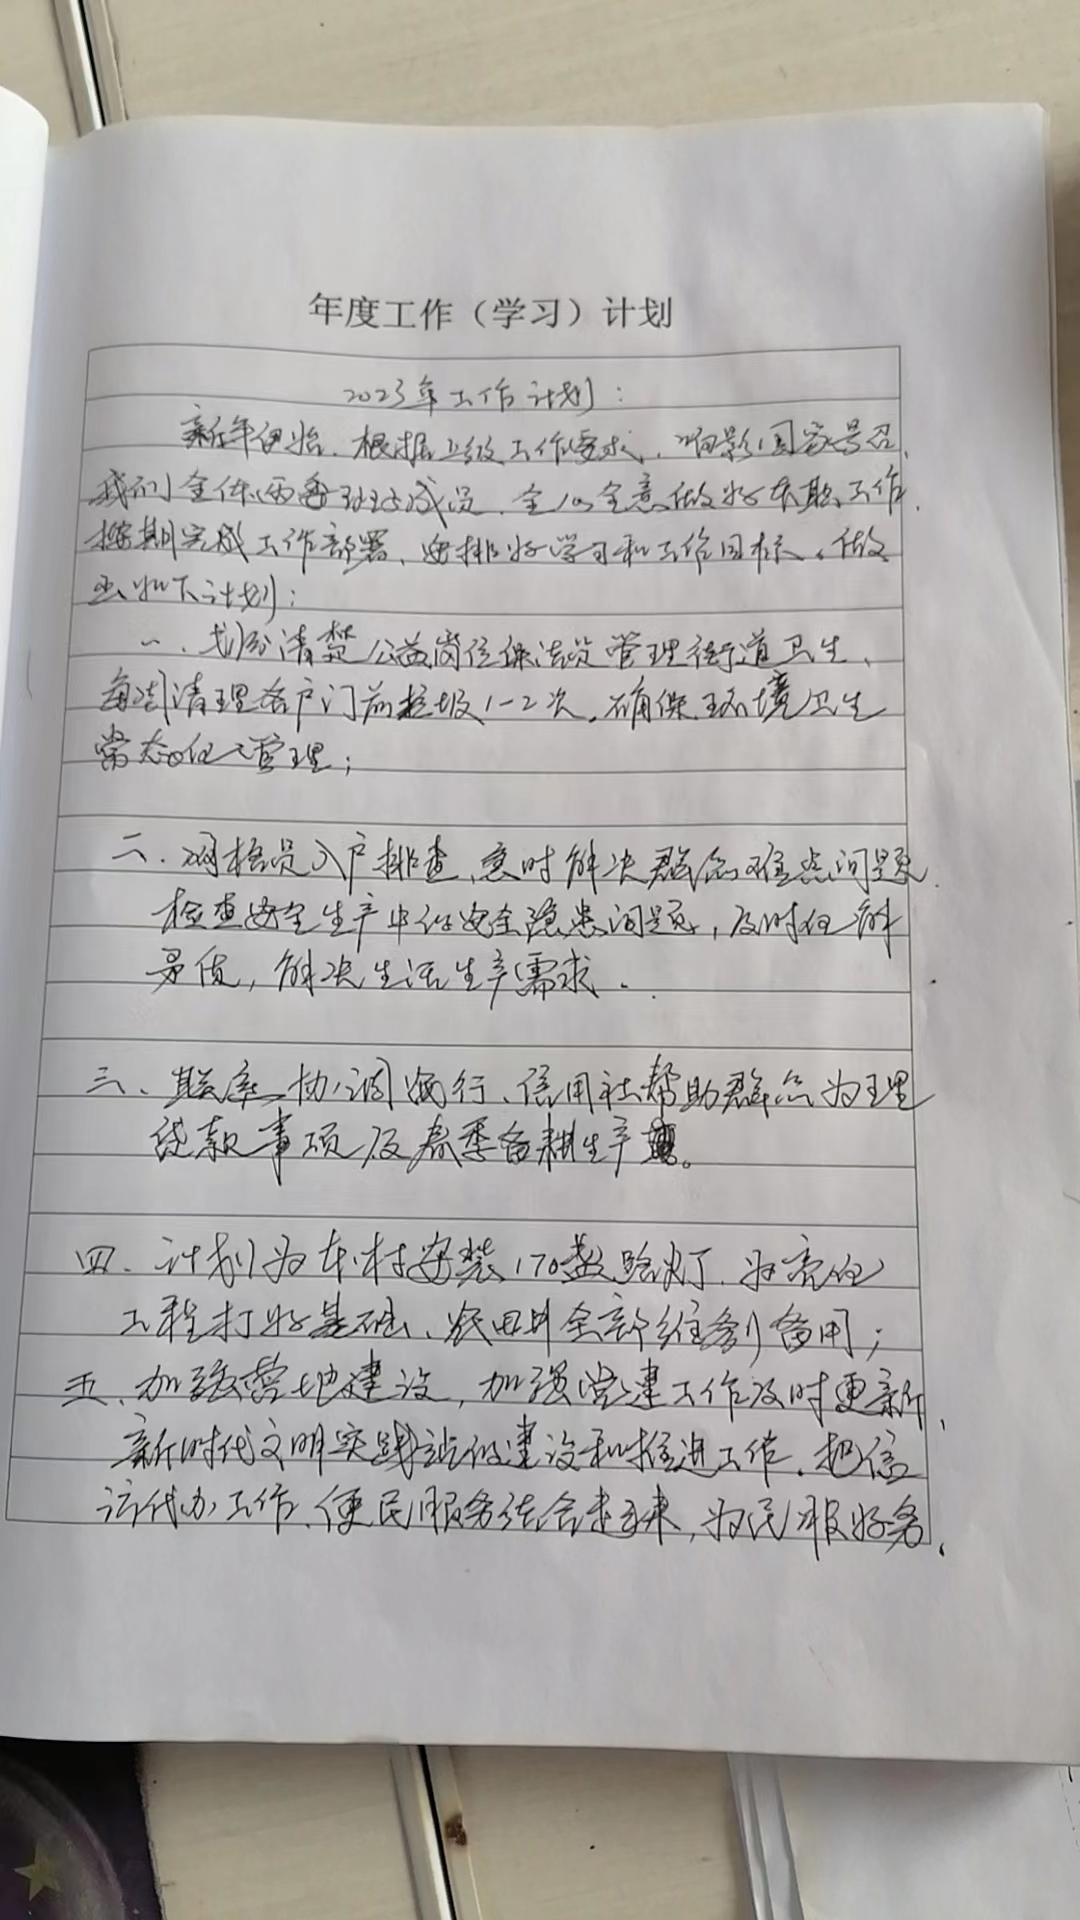 年度工作（学习）计划
2023年工作计划：
新年伊始、根据上级工作要求，响影国家号召，
我们全体两委班子成员、全心全意做好本职工作
按期完成工作部署、安排好学习和工作目标。做
出如下计划：
一、划分清楚公益岗位保洁员管理街道卫生、
每周清理各户门前垃圾1-2次。确保环境卫生
常态化管理；
二、网格员入户排查、急时解决群众难点问题
检查安全生产中的安全隐患问题，及时化解
矛盾，解决生活生产需求。
三、联系协调银行、信用社帮助群众办理
贷款事项及春季备耕生产。
四、计划为本村安装170盏路灯、为亮化
工程打好基础、农田井全部维修备用；
五、加强营地建设，加强党建工作及时更新、
新时代文明实践站的建设和推进工作。把信
访代办工作、便民服务结合起来，为民服好务、